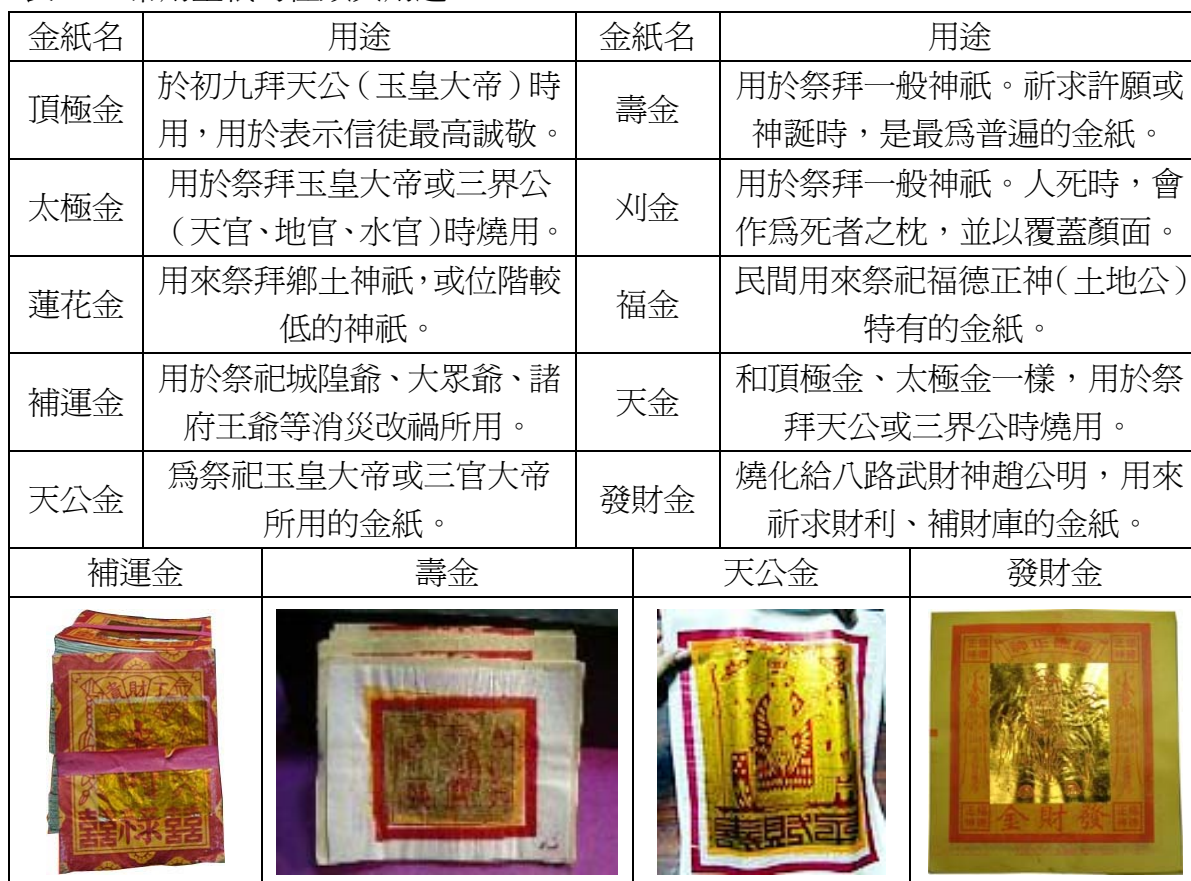 金紙名 用途 金紙名 用途
頂極金 於初九拜天公（玉皇大帝）時
用，用於表示信徒最高誠敬。
壽金 用於祭拜一般神祇。祈求許願或
神誕時，是最為普遍的金紙。
太極金 用於祭拜玉皇大帝或三界公
（天官、地官、水官）時燒用。
刈金 用於祭拜一般神祇。人死時，會
作為死者之枕，並以覆蓋顏面。
蓮花金 用來祭拜鄉土神祇，或位階較
低的神祇。
福金 民間用來祭祀福德正神（土地公）
特有的金紙。
補運金 用於祭祀城隍爺、大眾爺、諸
府王爺等消災改禍所用。
天金 和頂極金、太極金一樣，用於祭
拜天公或三界公時燒用。
天公金 為祭祀玉皇大帝或三官大帝
所用的金紙。
發財金 燒化給八路武財神趙公明，用來
祈求財利、補財庫的金紙。
補運金 壽金 天公金 發財金
金財發